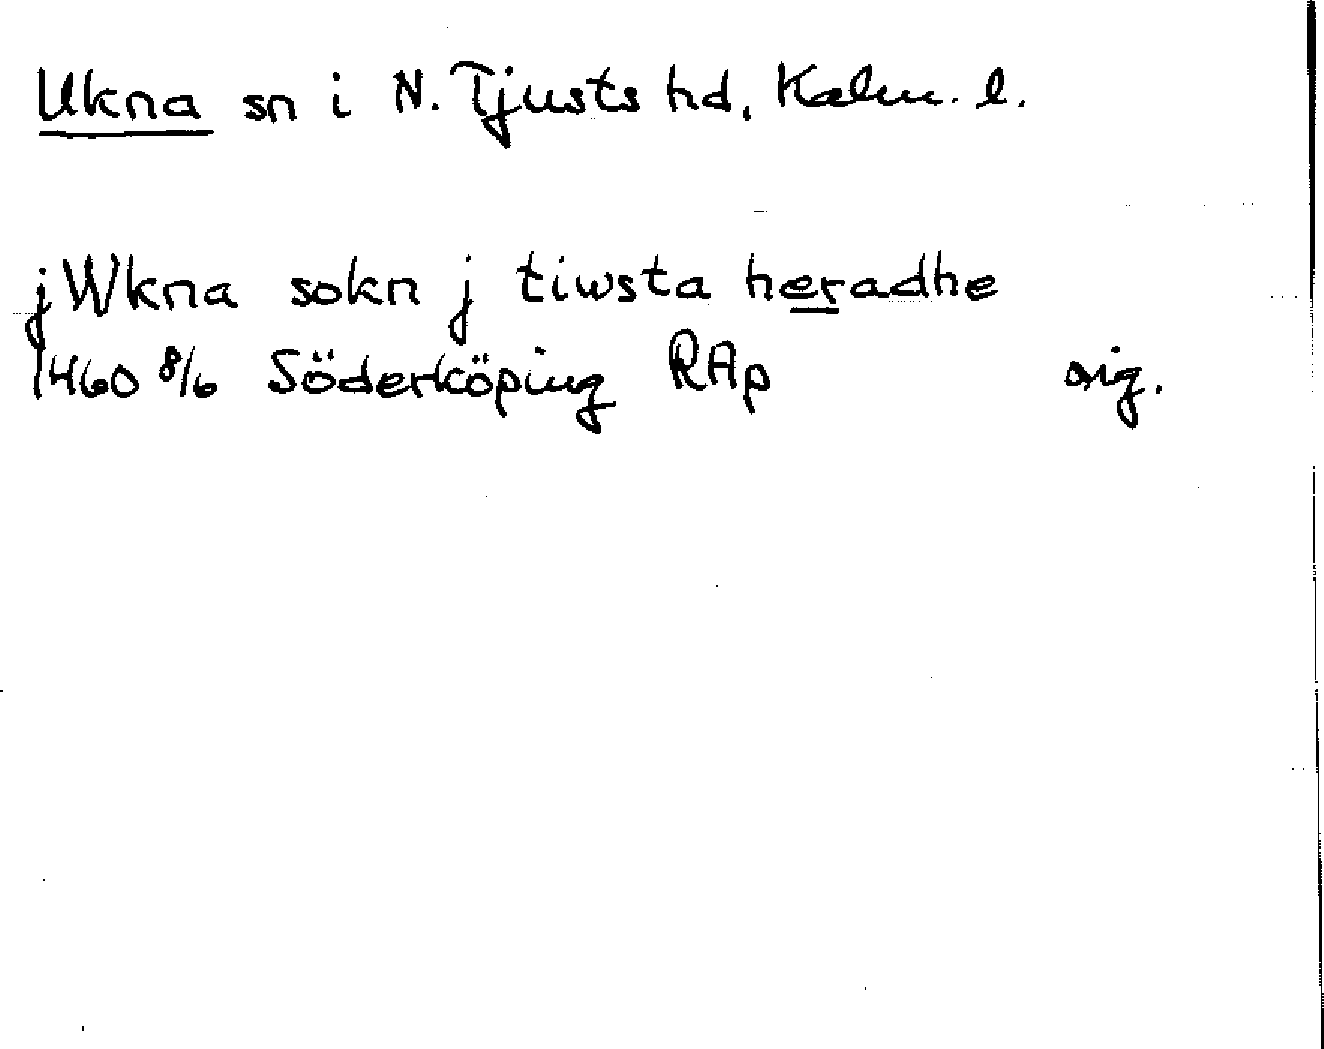 Ukna sn i N. Tjusts hd, Kalm. l.
j Wkna sokn j tiwsta heradhe
1460 8/6 Söderköping RAp orig.